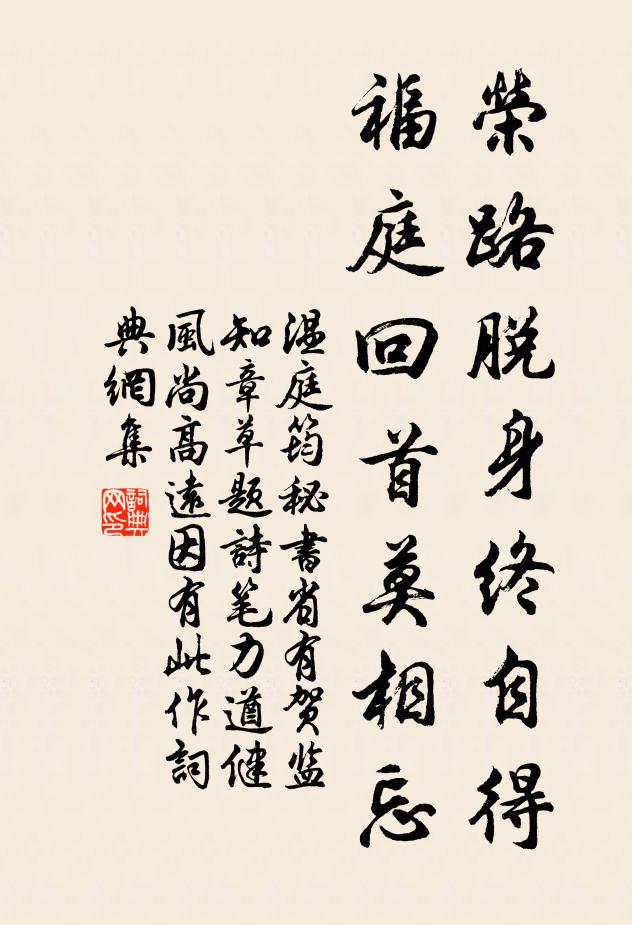 榮路脫身終自得
福庭回首莫相忘
温庭筠秘書省有賀监
知章草题詩笔力遒健
風尚高遠因有此作詞
典網集
詞典
网印